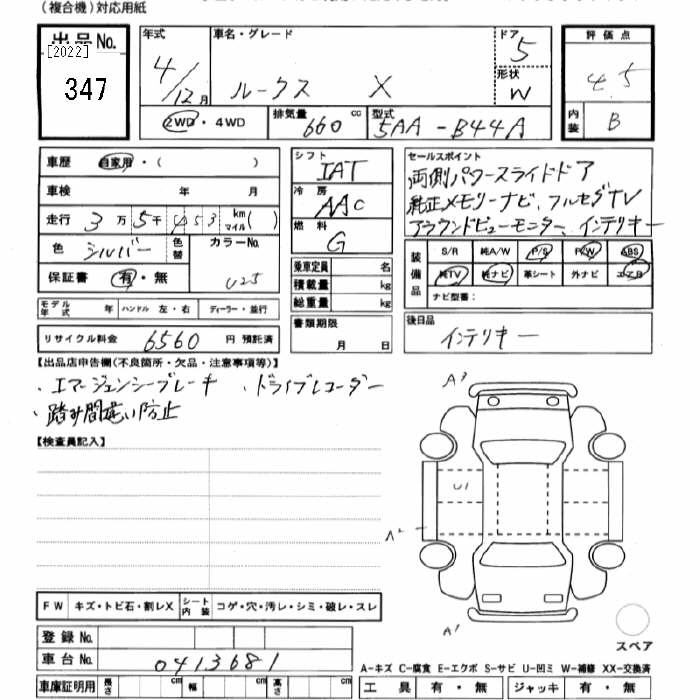 (複合機)対応用紙
出品No. [2022] 347
年式 4/12月
車名・グレード ルークス X
ドア 5
形状 W
評価点 4.5
内装 B
2WD・4WD
排気量 660 cc
型式 5AA-B44A
車歴 自家用・( )
車検 年 月
走行 3万5千453 km マイル( )
色 シルバー 色替
カラーNo. U25
保証書 有・無
モデル年式 年 ハンドル 左・右 ディーラー・並行
リサイクル料金 6560 円 預託済
シフト IAT
冷房 AAC
燃料 G
乗車定員 名
積載量 kg
総重量 kg
書類期限 月 日
セールスポイント
両側パワースライドドア
純正メモリーナビ、フルセグTV
アラウンドビューモニター、インテリキー
装備品 S/R 純A/W P/S P/W ABS
純TV 純ナビ 革シート 外ナビ エアB
ナビ型番:
後日品 インテリキー
【出品店申告欄(不良箇所・欠品・注意事項等)】
・エマージェンシーブレーキ ・ドライブレコーダー
・踏み間違い防止
【検査員記入】
A3
U1
A2
A1
スペア
FW キズ・トビ石・割レX シート内装 コゲ・穴・汚レ・シミ・破レ・スレ
登録No.
車台No. 0413681
車庫証明用 長さ cm 幅 cm 高さ cm
A-キズ C-腐食 E-エクボ S-サビ U-凹ミ W-補修 XX-交換済
工具 有・無 ジャッキ 有・無